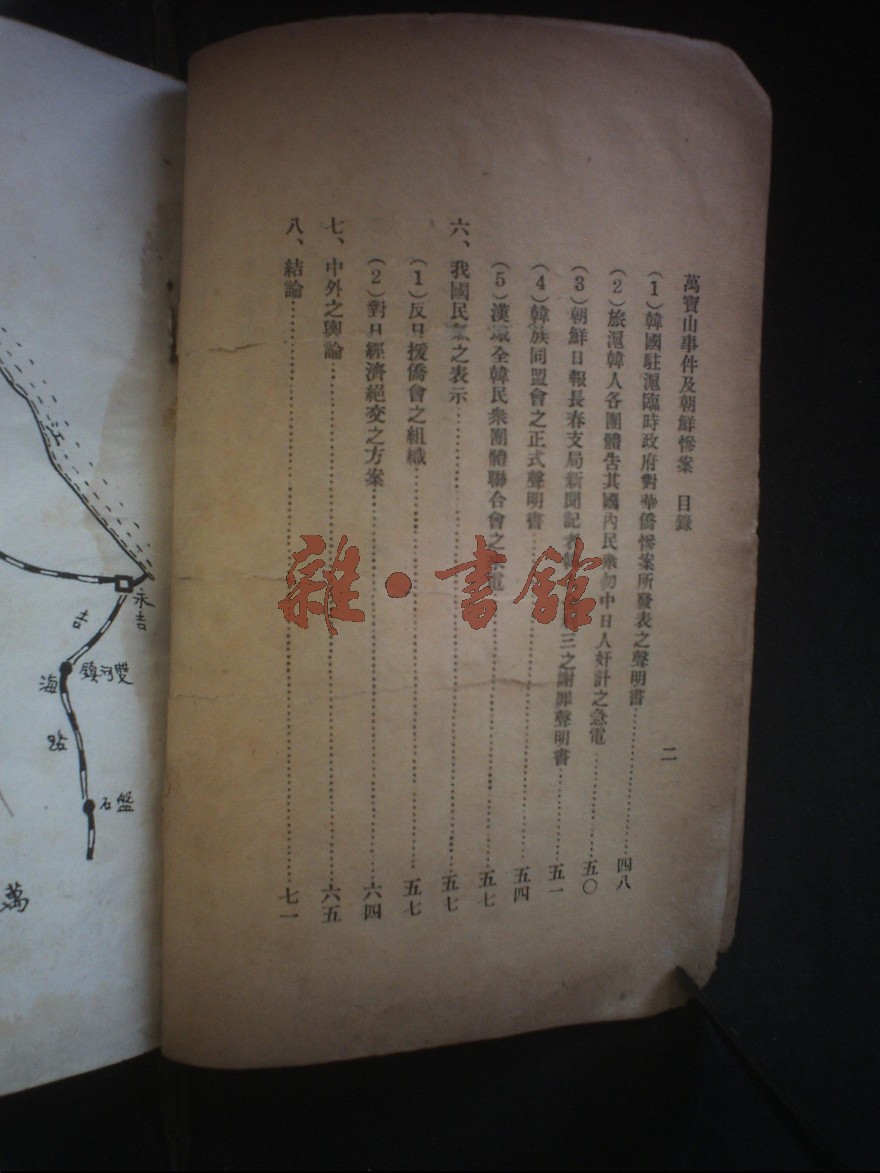 萬寶山事件及朝鮮慘案　目錄
二
（1）韓國駐滬臨時政府對華僑慘案所發表之聲明書……四八
（2）旅滬韓人各團體告其國內民衆勿中日人奸計之急電……五〇
（3）朝鮮日報長春支局新聞記者三之謝罪聲明書……五一
（4）韓族同盟會之正式聲明書……五四
（5）漢城全韓民衆團體聯合會之電……五七
六、我國民氣之表示……五七
（1）反日援僑會之組織……五七
（2）對日經濟絕交之方案……六四
七、中外之輿論……六五
八、結論……七一
雜·書館
江
永吉
吉
雙河鎮
海
路
盤石
萬